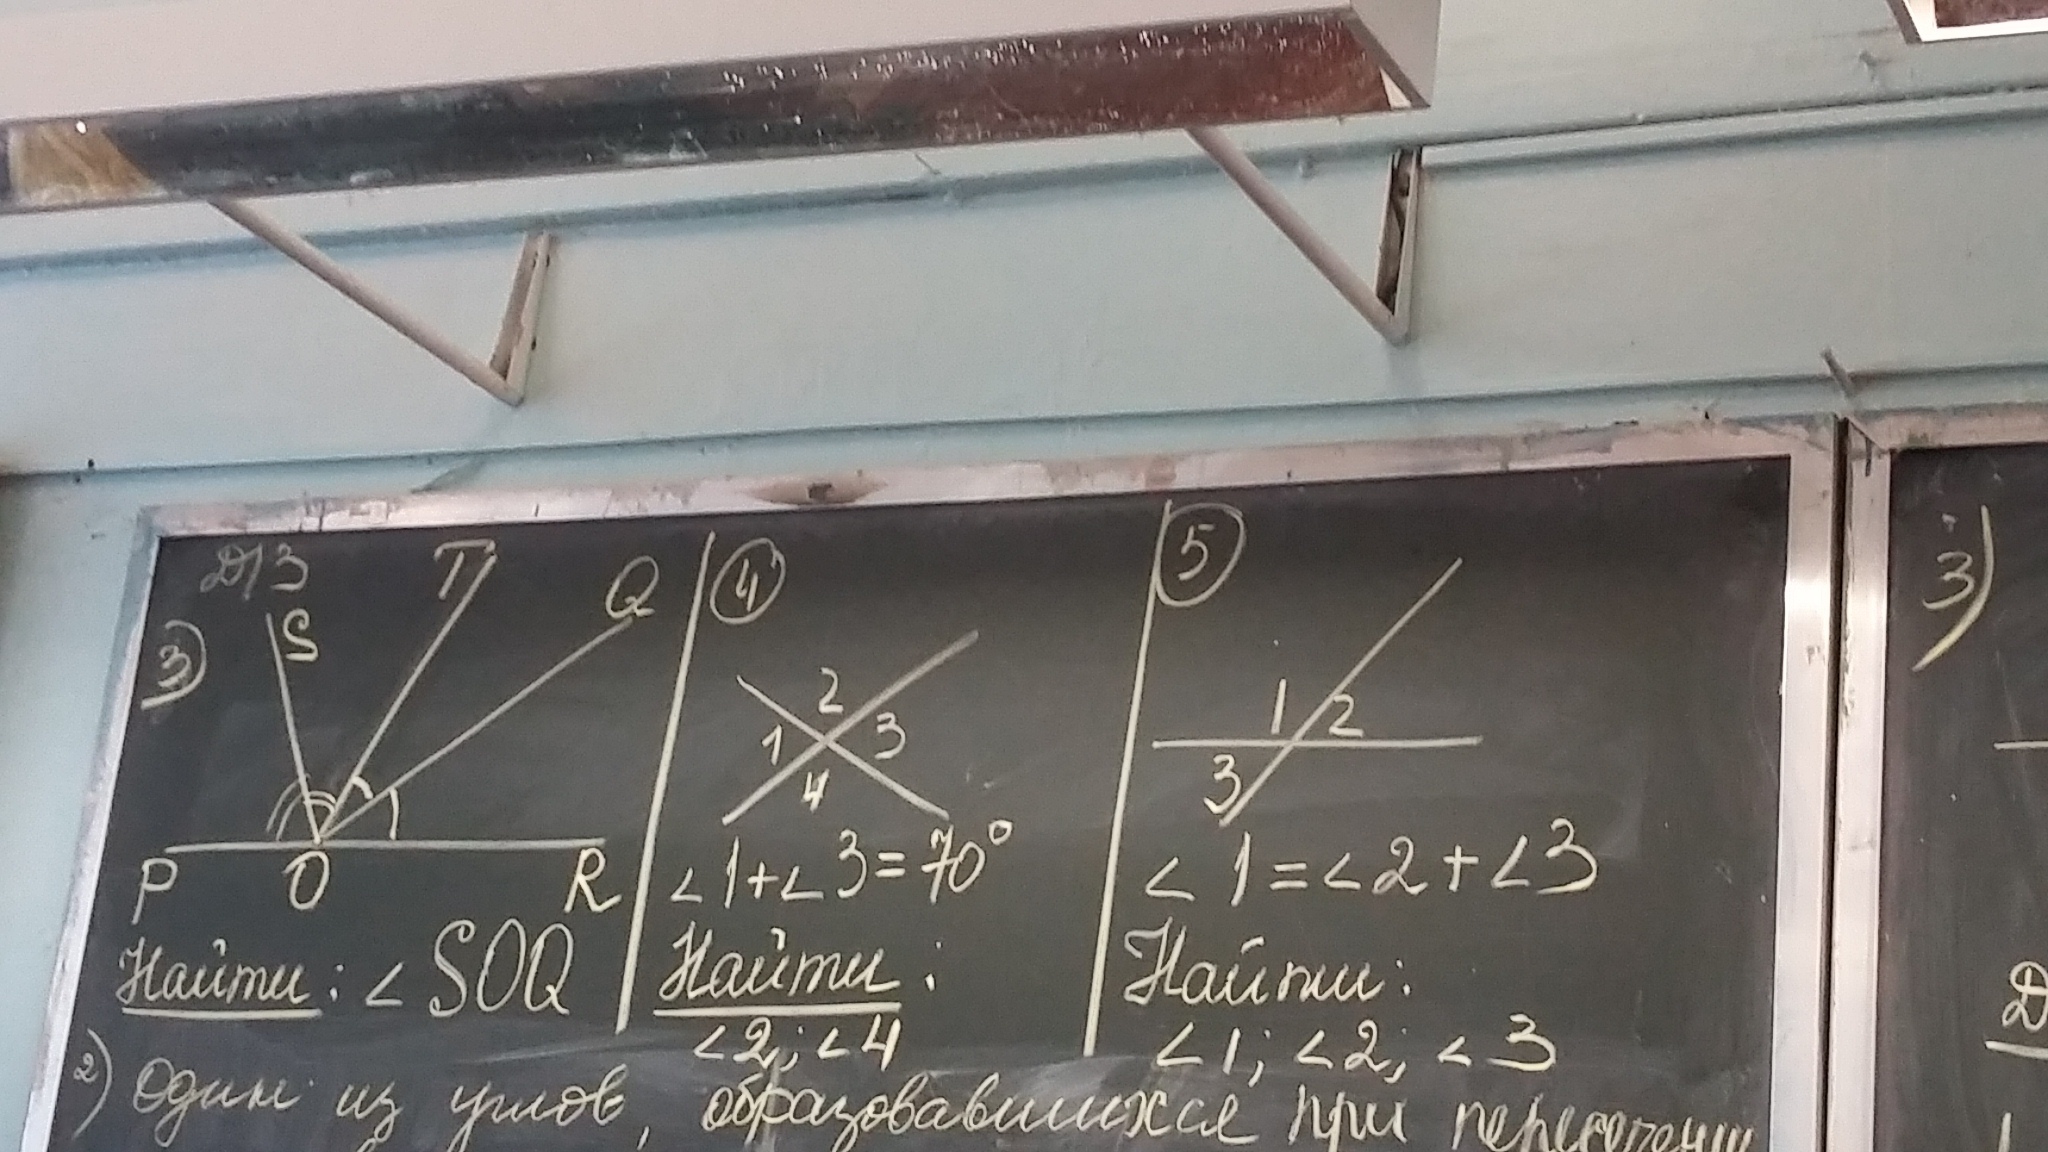 Д/З
3)
S
T
Q
P
O
R
Найти: < SOQ
4
1
2
3
4
<1+<3=70°
Найти:
<2; <4
5
1
2
3
< 1=<2+<3
Найти:
<1; <2; <3
2) Один из углов, образовавшихся при пересечении
3)
Д